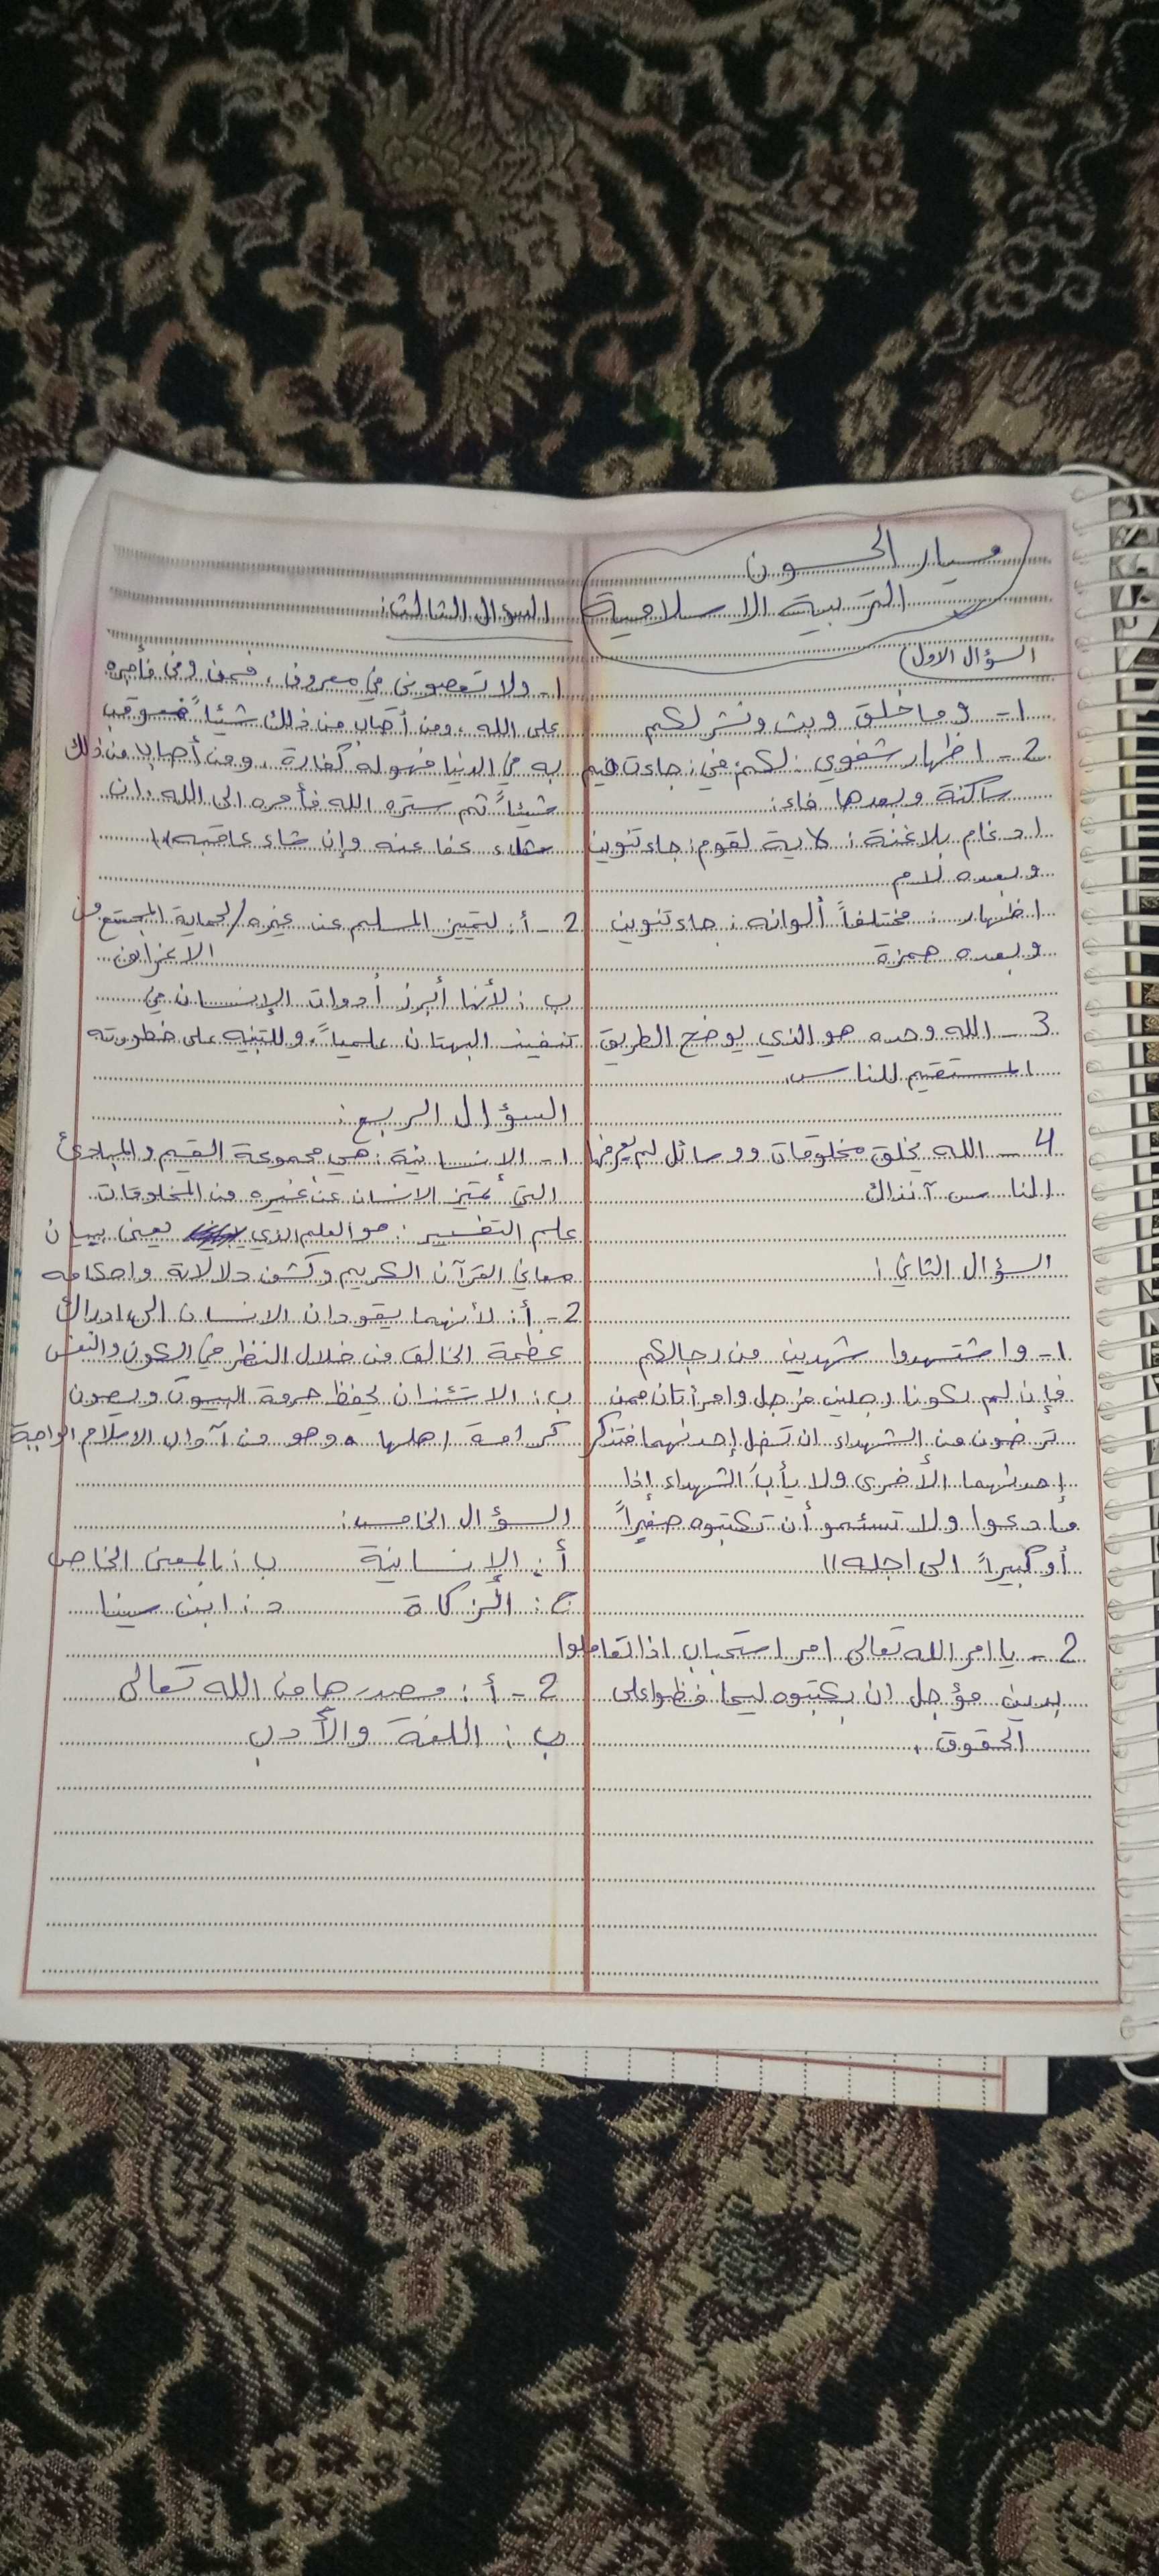 ميار الحسون
التربية الاسلامية
السؤال الاول
1- وما خلق وبث ونشر لكم
2- اظهار شفوي: لكم في: جاءت ميم
ساكنة وبعدها فاء:
ادغام بلا غنة: لاية لقوم: جاء تنوين
وبعده للام
اظهار: مختلفاً ألوانه: جاء تنوين
وبعده همزة
3- الله وحده هو الذي يوضح الطريق
المستقيم للناس
4- الله يخلق مخلوقات ووسائل لم يعرفها
الناس آنذاك
السؤال الثاني:
1- واشتهدوا شهدين من رجالكم
فإن لم يكونا رجلين فرجل وامرأتان ممن
ترضون من الشهداء ان تضل إحدىهما فتذكر
إحدىهما الأخرى ولا يأب الشهداء إذا
ما دعوا ولا تسئمو أن تكتبوه صغيراً
أو كبيراً الى اجله"
2- يا امر الله تعالى امر استحباب اذا تعاملوا
بدين مؤجل ان يكتبوه ليحافظوا على
الحقوق.
السؤال الثالث:
1- ولا تعصوني في معروف، فمن وفى فأجره
على الله، ومن أصاب من ذلك شيئاً فعوقب
به في الدنيا فهو له كفارة، ومن أصاب من ذلك
شيئاً ثم ستره الله فأمره الى الله، ان
شاء عفا عنه وإن شاء عاقبه"
2- أ: لتمييز المسلم عن غيره/لحماية المجتمع من
الانحراف
ب: لأنها أبرز أدوات الإنسان في
تنفيذ البهتان علمياً، وللتنبيه على خطورته
السؤال الربع:
1- الإنسانية: هي مجموعة القيم والمبادئ
التي تميز الانسان عن غيره من المخلوقات
علم التفسير: هو العلم الذي يعنى ببيان
معاني القرآن الكريم وكشف دلالاته واحكامه
2- أ: لأنهما يقودان الانسان الى ادراك
عظمة الخالق من خلال النظر في الكون والنفس
ب: الاستئذان يحفظ حرمة البيوت ويصون
كرامة اهلها، وهو من آداب الاسلام الواجبة
السؤال الخامس:
أ: الإنسانية ب: بالمعنى الخاص
ج: الزكاة د: ابن سينا
2- أ: مصدرها من الله تعالى
ب: اللغة والأدب